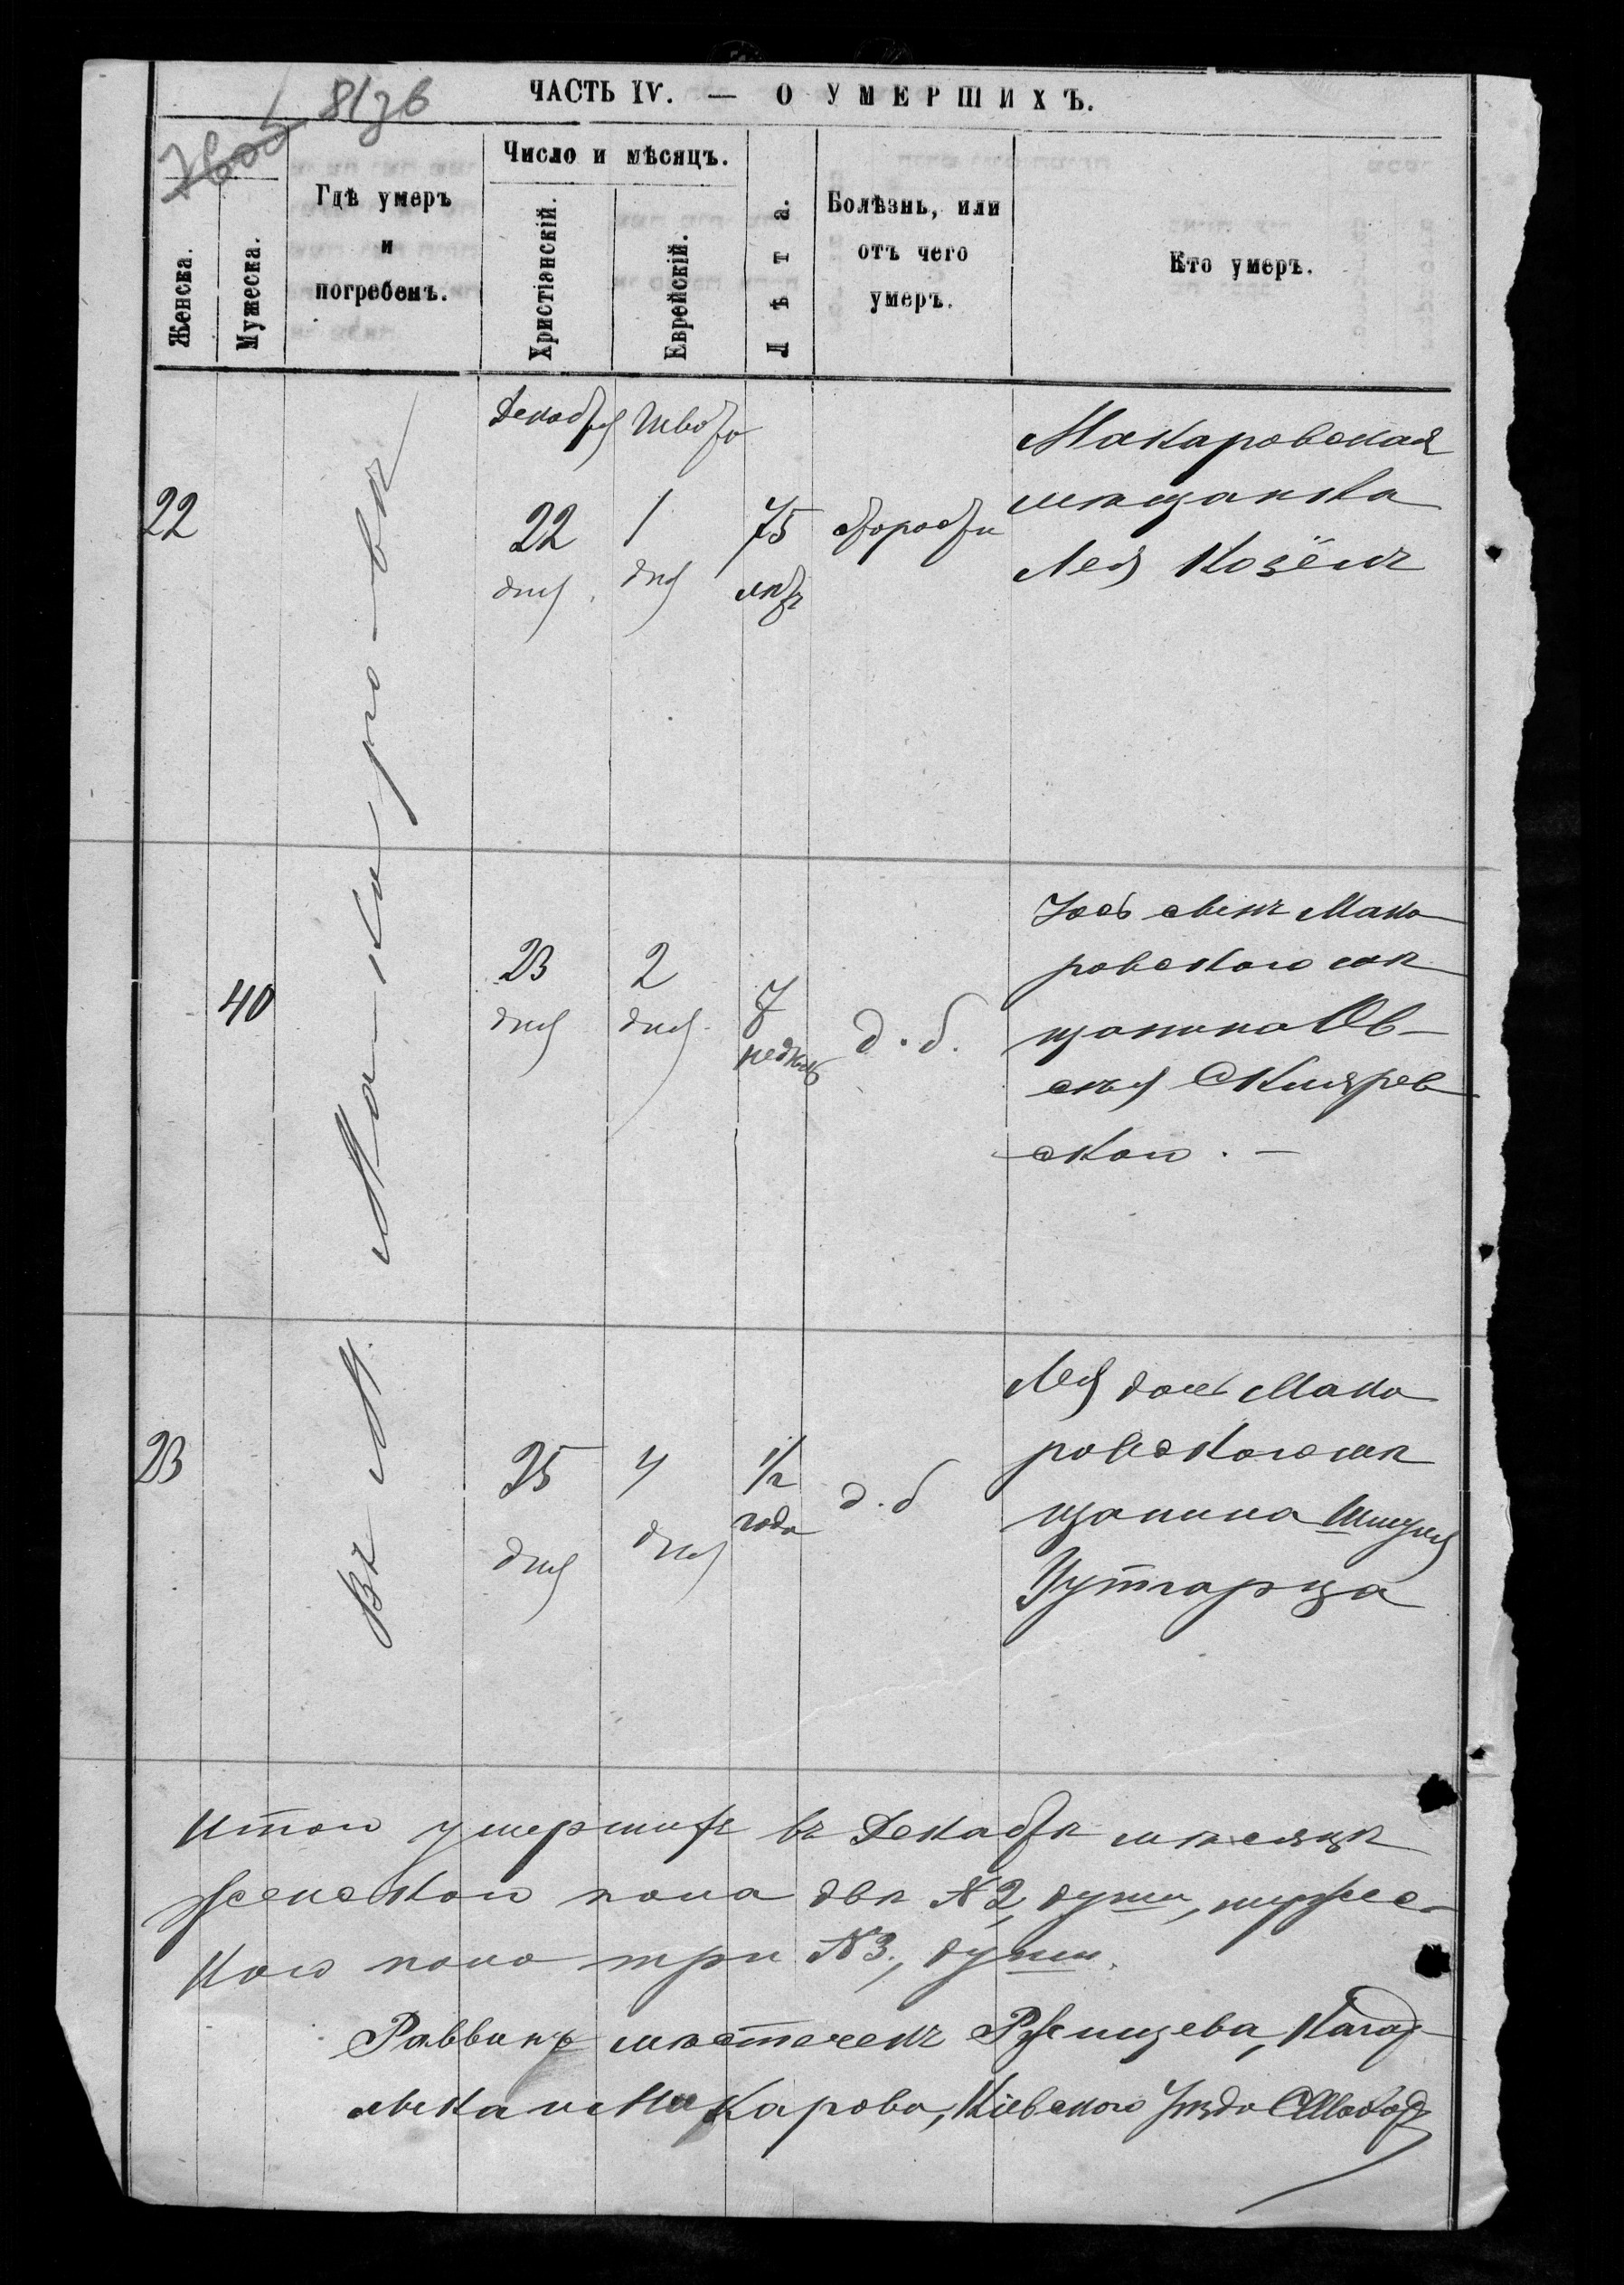 ЧАСТЬ IV. — О УМЕРШИХЪ.
8136
Женска.
Мужеска.
Гдѣ умеръ
и
погребенъ.
Число и мѣсяцъ.
Христіанскій.
Еврейскій.
Лѣта.
Болѣзнь, или
отъ чего
умеръ.
Кто умеръ.
Въ М. Ма-ка-ро-вѣ
Декабря
22
22
дня
1
дня
75
лѣтъ
Макаровская
мѣщанка
Лея Козёлъ
40
23
дня
2
дня
7
недѣль
д. б.
сынъ Мака
ровского мѣ
щанина Ов-
сѣя Скляров
ского. —
23
25
дня
4
дня
1/2
года
д. б
Лея дочь Мака
ровского мѣ
щанина Шмуля
Итого умершихъ въ Декабрѣ мѣсяцѣ
женского пола двѣ № 2, души, мужес-
кого пола три № 3, души.
Раввинъ мѣстечекъ Ржищева, Кагар-
лыка и Макарова, Кіевского Уѣзда